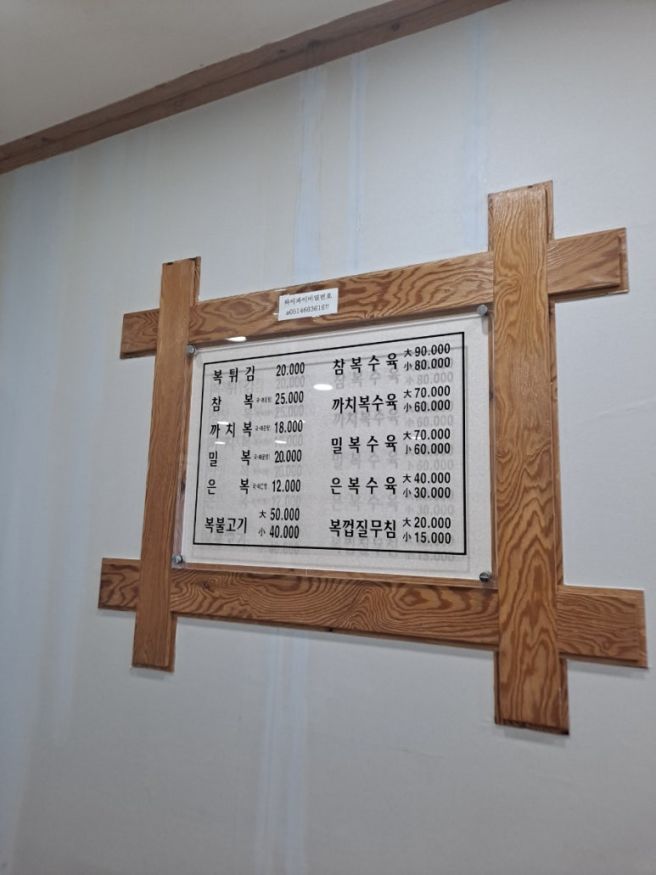 와이파이비밀번호
복튀김 20.000
참복 25.000
까치복 18.000
밀복 20.000
은복 12.000
복불고기 大 50.000
小 40.000
참복수육 大 90.000
小 80.000
까치복수육 大 70.000
小 60.000
밀복수육 大 70.000
小 60.000
은복수육 大 40.000
小 30.000
복껍질무침 大 20.000
小 15.000